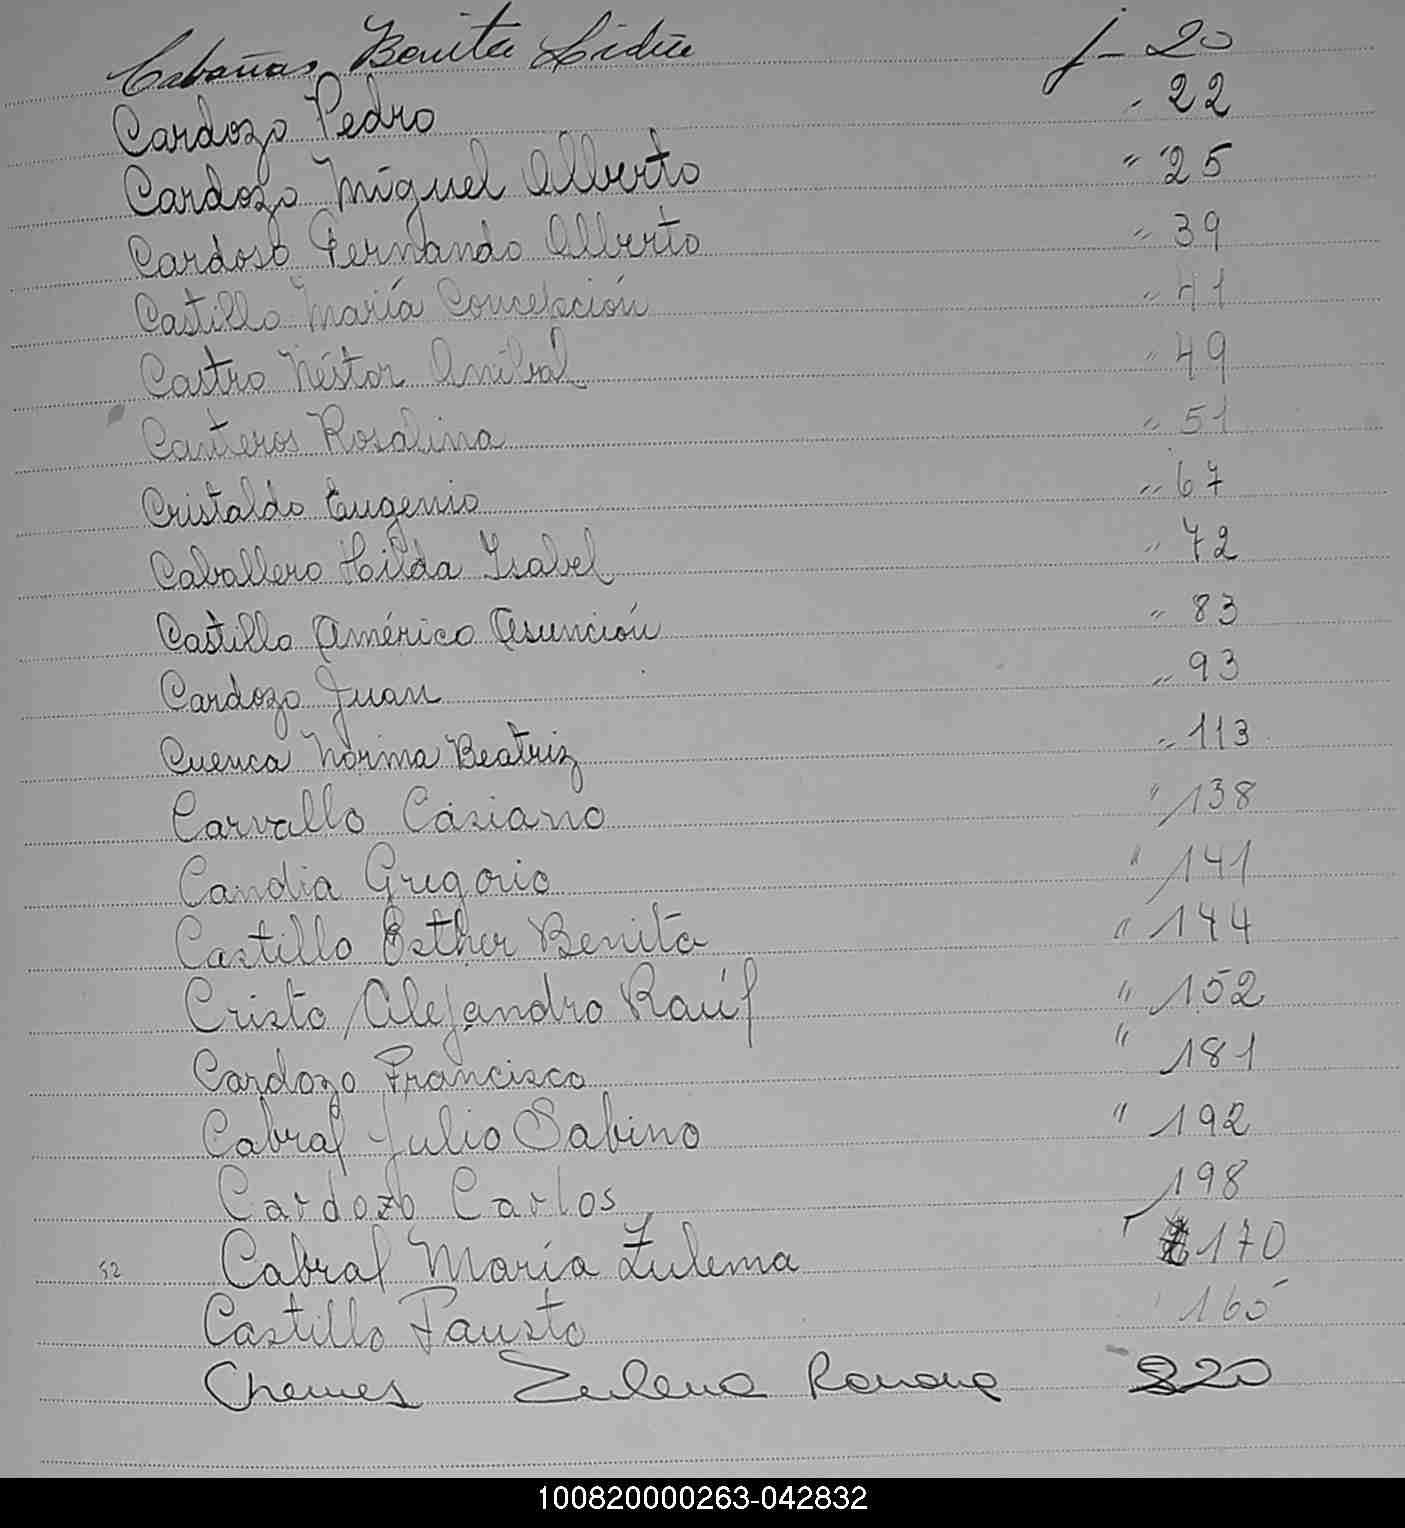 Cabañas Benita Lidia f- 20
Cardozo Pedro " 22
Cardozo Miguel Alberto " 25
Cardoso Fernando Alberto " 39
Castillo María Concepción " 41
Castro Néstor Aníbal " 49
Canteros Rosalina " 51
Cristaldo Eugenio " 67
Caballero Hilda Isabel " 72
Castillo Américo Asunción " 83
Cardozo Juan " 93
Cuenca Norma Beatriz " 113
Carvallo Casiano " 138
Candia Gregorio " 141
Castillo Esther Benita " 144
Cristo Alejandro Raúl " 152
Cardozo Francisco " 181
Cabral Julio Sabino " 192
Cardozo Carlos 198
52 Cabral María Zulema 170
Castillo Fausto 165
Chemes Zulema Ramona 220
100820000263-042832